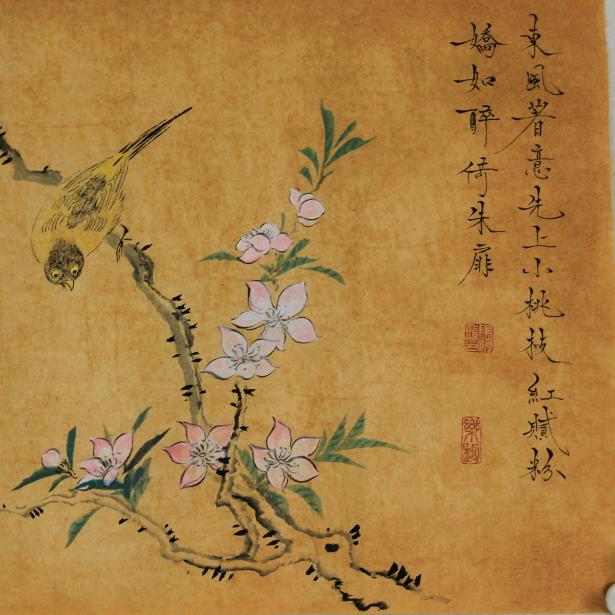 東風著意先上小桃枝紅膩粉
嬌如醉倚朱扉